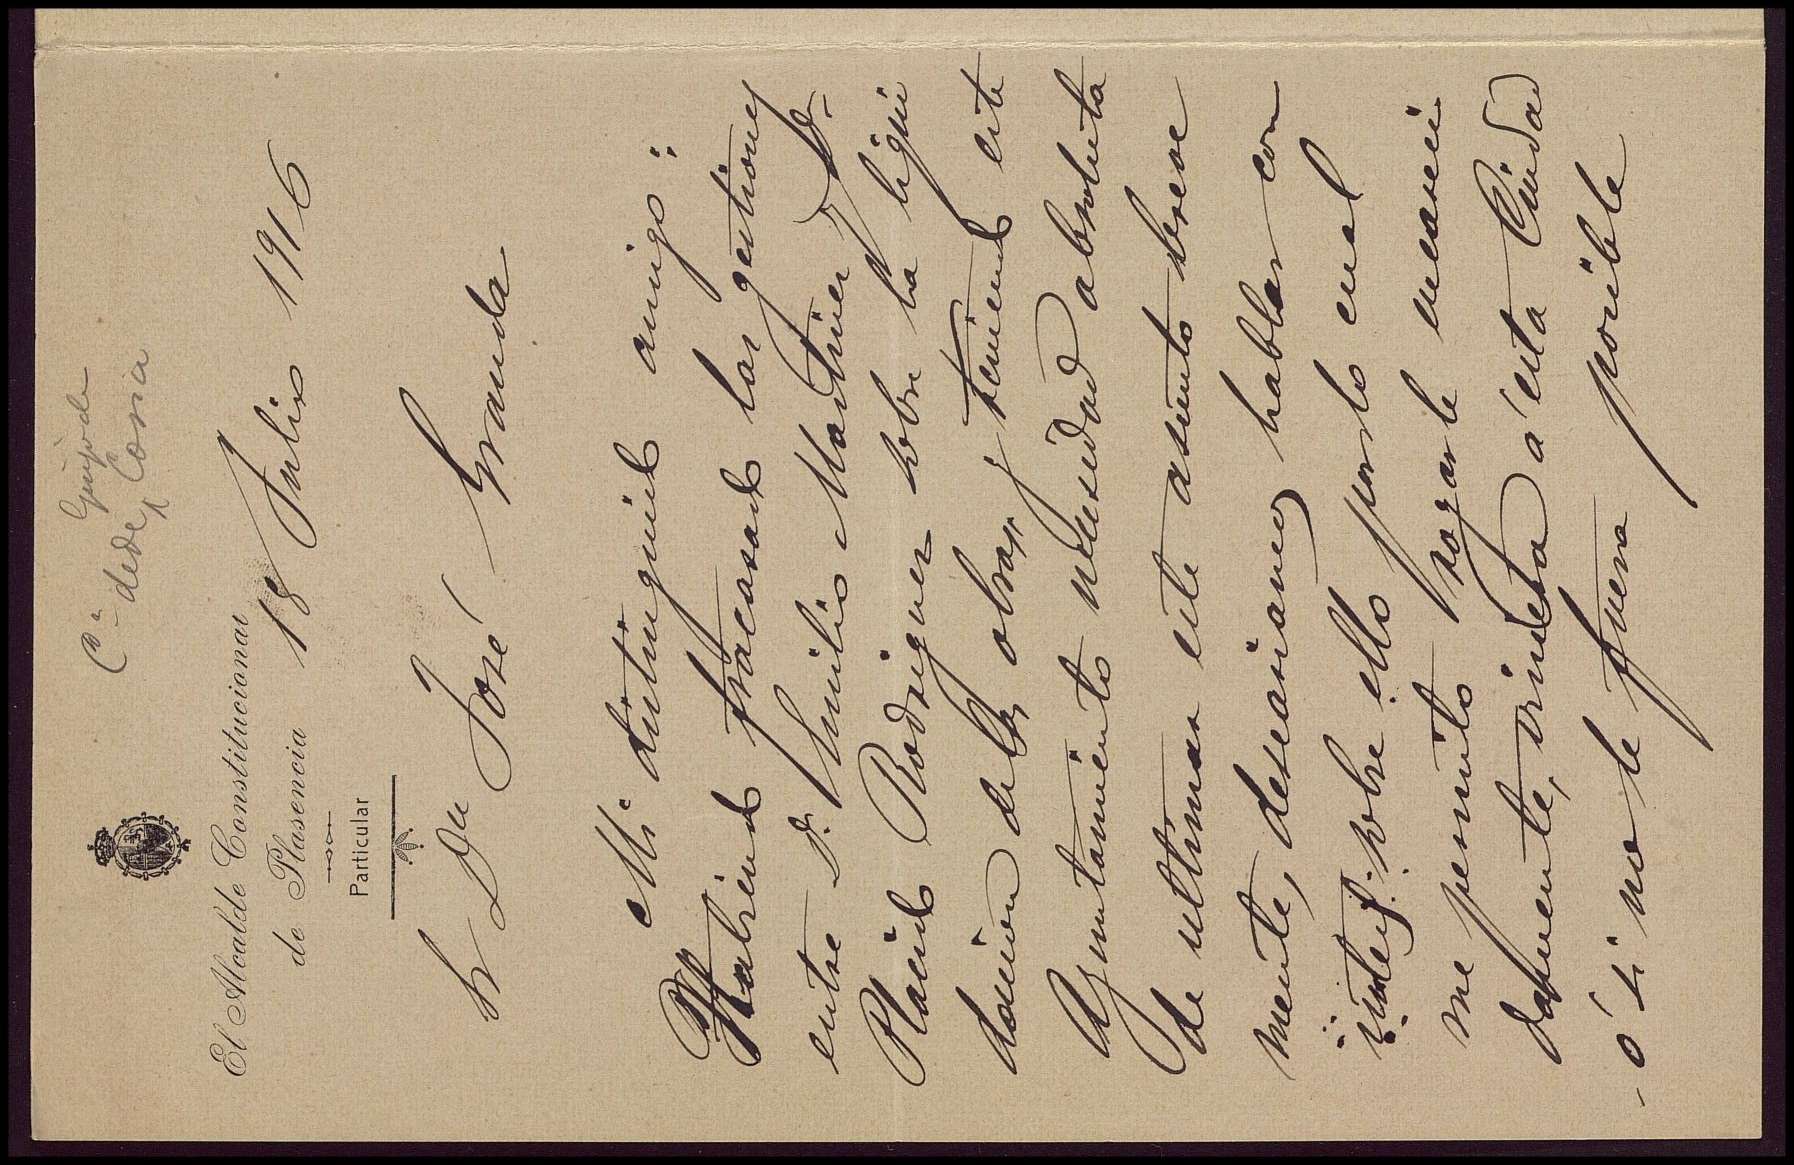 Cº desde Guijo de Coria
El Alcalde Constitucional
de Plasencia
Particular
18 Julio 1916
Sr Dn José Granda
Mi distinguido amigo:
Habiendo fracasado las gestiones
entre D. Emilio Martinez y D.
Placido Rodriguez sobre la liqui
dacion de las obras, y teniendo este
Ayuntamiento necesidad absoluta
de ultimar este asunto breve
mente, desearíamos hablar con
sobre ello por lo cual
me permito rogarle encareci
damente, venga á esta Ciudad
ó si no le fuera posible